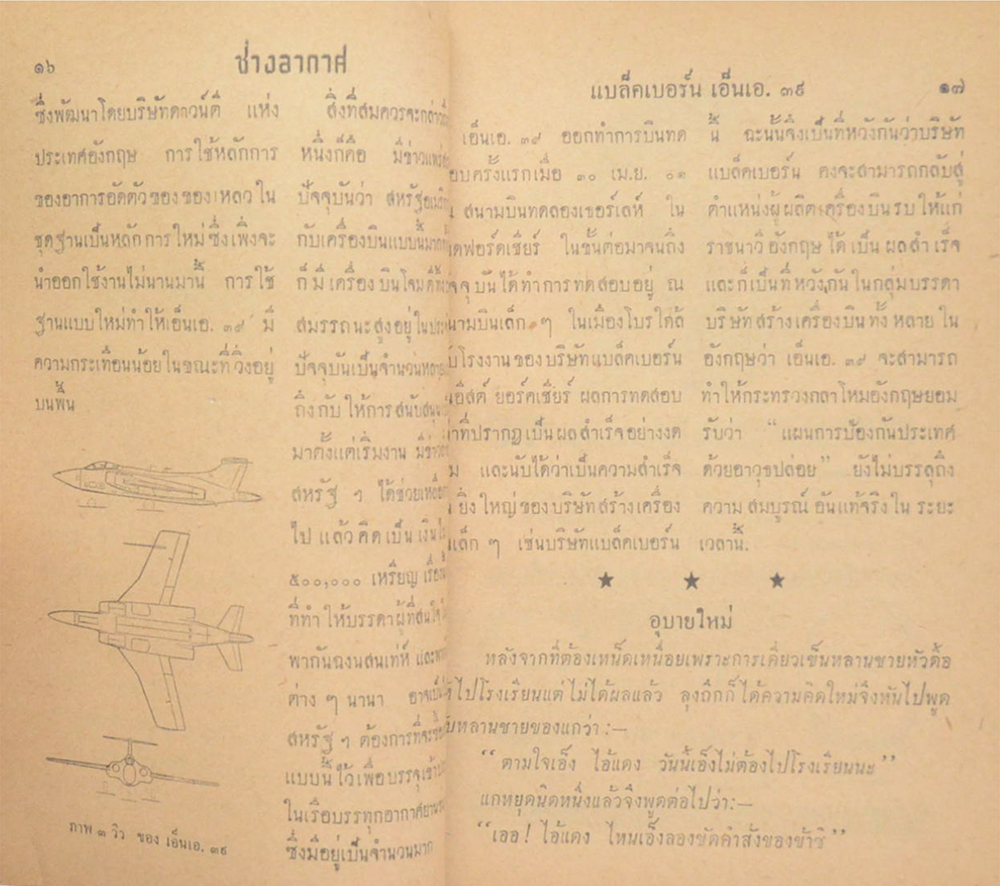 ๑๖
ช่างอากาศ
ซึ่งพัฒนาโดยบริษัทดาวน์ตี แห่ง
ประเทศอังกฤษ การใช้หลักการ
ของอาการอัดตัวของของเหลวใน
ชุดฐานเป็นหลักการใหม่ซึ่งเพิ่งจะ
นำออกใช้งานไม่นานมานี้ การใช้
ฐานแบบใหม่ทำให้เอ็นเอ. ๓๙ มี
ความกระเทือนน้อยในขณะที่วิ่งอยู่
บนพื้น
ภาพ ๓ วิว ของ เอ็นเอ. ๓๙
สิ่งที่สมควรจะกล่าว
หนึ่งก็คือ มีข่าว
ปัจจุบันว่า สหรัฐ
กับเครื่องบินแบบนี้
ก็มีเครื่องบินโจมตี
สมรรถนะสูงอยู่ใน
ปัจจุบันเป็นจำนวน
ถึงกับให้การ
มาตั้งแต่เริ่มงาน มี
สหรัฐ ฯ ได้ช่วย
ไป แล้วคิดเป็นเงิน
๕๐๐,๐๐๐ เหรียญ
ที่ทำให้บรรดาผู้ที่
พากันฉงนสนเท่ห์
ต่าง ๆ นานา
สหรัฐ ฯ ต้องการที่จะ
แบบนี้ไว้เพื่อบรรจุ
ในเรือบรรทุกอากาศยาน
ซึ่งมีอยู่เป็นจำนวนมาก
แบล็คเบอร์น เอ็นเอ. ๓๙
๑๗
เอ็นเอ. ๓๙ ออกทำการบินทด
ครั้งแรกเมื่อ ๓๐ เม.ย. ๐๑
สนามบินทดลองเธอร์เลห์ ใน
ในขั้นต่อมาจนถึง
ได้ทำการทดสอบอยู่ ณ
เล็ก ๆ ในเมืองโบรใกล้
โรงงานของบริษัทแบล็คเบอร์น
ยอร์คเชียร์ ผลการทดสอบ
ที่ปรากฏเป็นผลสำเร็จอย่างงด
และนับได้ว่าเป็นความสำเร็จ
ยิ่งใหญ่ของบริษัทสร้างเครื่อง
เล็ก ๆ เช่นบริษัทแบล็คเบอร์น
นี้ ฉะนั้นจึงเป็นที่หวังกันว่าบริษัท
แบล็คเบอร์น คงจะสามารถกลับสู่
ตำแหน่งผู้ผลิตเครื่องบินรบให้แก่
ราชนาวีอังกฤษได้เป็นผลสำเร็จ
และก็เป็นที่หวังกันในกลุ่มบรรดา
บริษัทสร้างเครื่องบินทั้งหลายใน
อังกฤษว่า เอ็นเอ. ๓๙ จะสามารถ
ทำให้กระทรวงกลาโหมอังกฤษยอม
รับว่า “แผนการป้องกันประเทศ
ด้วยอาวุธปล่อย” ยังไม่บรรลุถึง
ความสมบูรณ์อันแท้จริงในระยะ
เวลานี้.
★ ★ ★
อุบายใหม่
หลังจากที่ต้องเหน็ดเหนื่อยเพราะการเคี่ยวเข็นหลานชายหัวดื้อ
ไปโรงเรียนแต่ไม่ได้ผลแล้ว ลุงถึกก็ได้ความคิดใหม่จึงหันไปพูด
หลานชายของแกว่า :—
“ตามใจเอ็ง ไอ้แดง วันนี้เอ็งไม่ต้องไปโรงเรียนนะ”
แกหยุดนิดหนึ่งแล้วจึงพูดต่อไปว่า:—
“เออ! ไอ้แดง ไหนเอ็งลองขัดคำสั่งของข้าซิ”